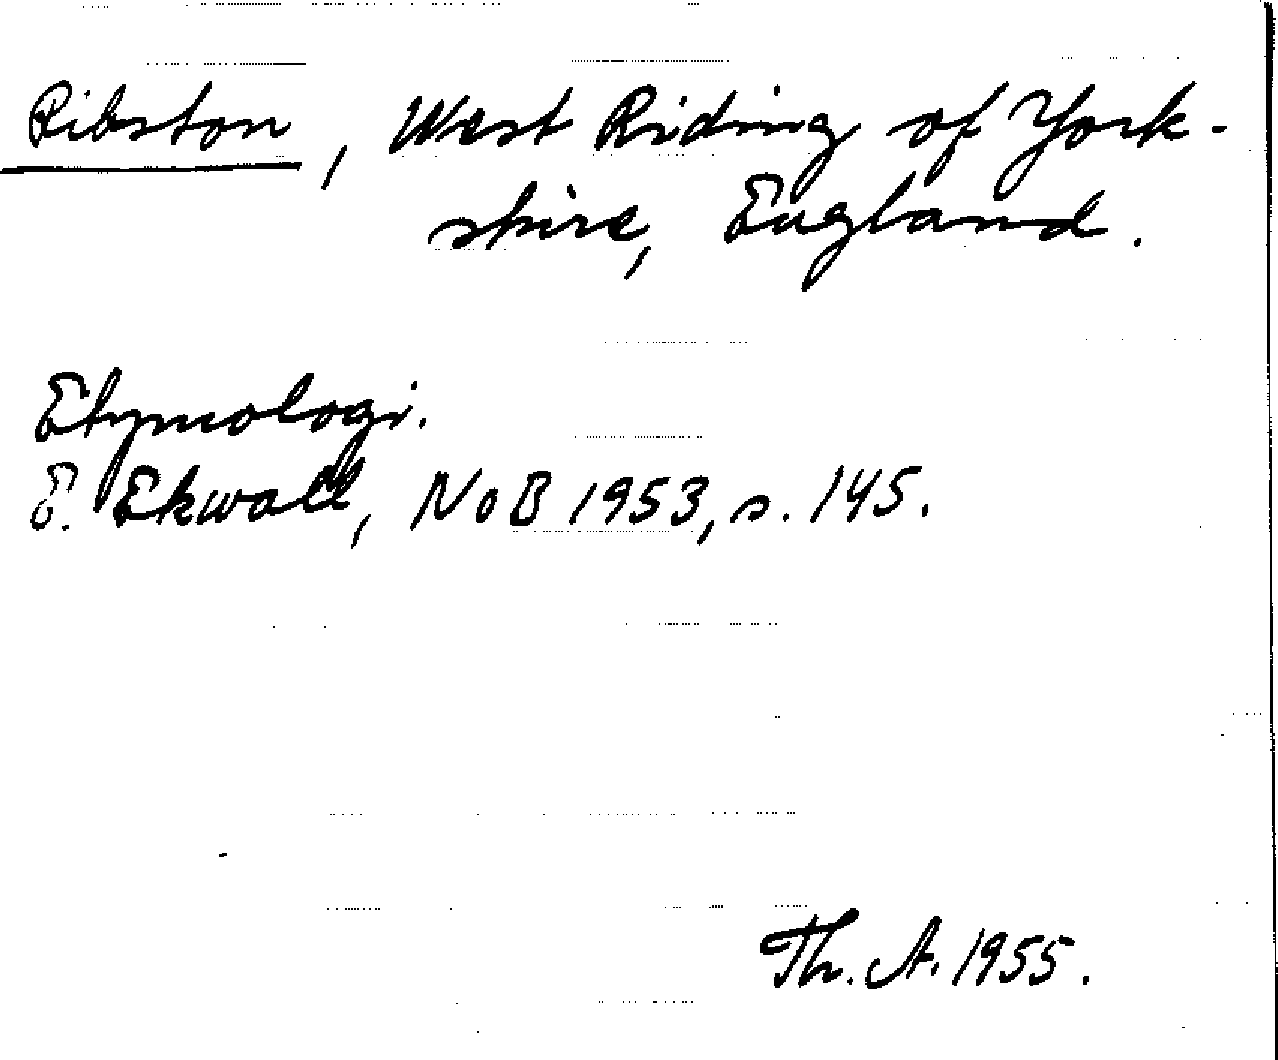 Ribston, West Riding of York-
shire, England.
Etymologi.
E. Ekwall, NoB 1953, s. 145.
Th. A. 1955.